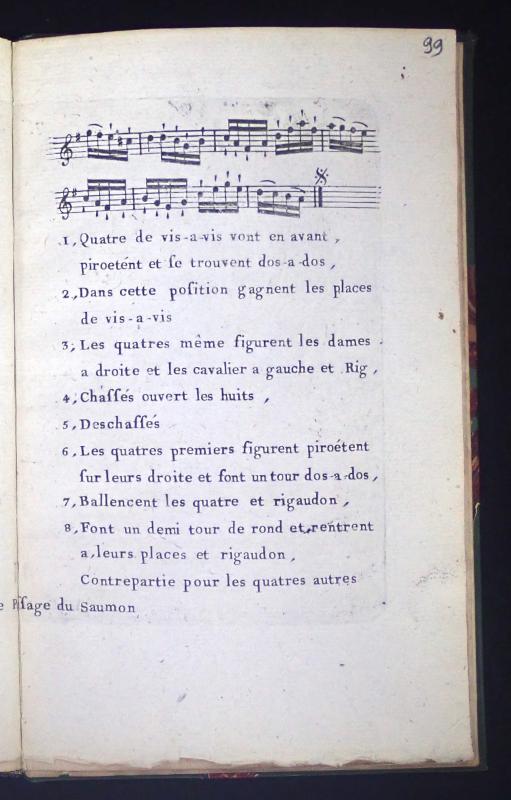 99
1, Quatre de vis-a-vis vont en avant,
piroetént et ſe trouvent dos-a-dos,
2, Dans cette poſition gagnent les places
de vis-a-vis
3, Les quatres même figurent les dames
a droite et les cavalier a gauche et Rig,
4, Chaſſés ouvert les huits,
5, Deschaſſés
6, Les quatres premiers figurent piroétent
ſur leurs droite et font un tour dos-a-dos,
7, Ballencent les quatre et rigaudon,
8, Font un demi tour de rond et rentrent
a leurs places et rigaudon,
Contrepartie pour les quatres autres
e Pſage du Saumon